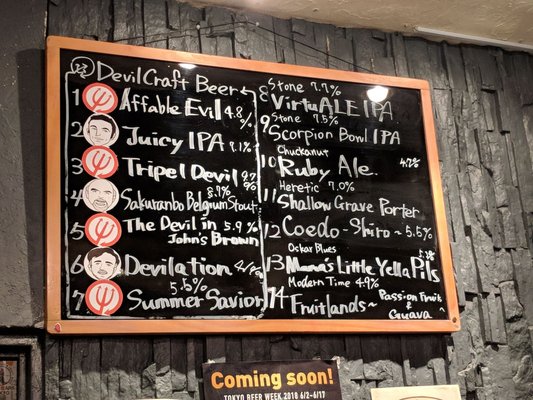 DevilCraft Beer
1 Affable Evil 4.8%
2 Juicy IPA 7.1%
3 Tripel Devil 9.2%
4 Sakuranbo Belgium Stout 8.7%
5 The Devil in 5.9%
John's Brown
6 Devilation
5.5%
7 Summer Savior
Stone 7.7%
8 VirtuALE IPA
Stone 7.5%
9 Scorpion Bowl IPA
Chuckanut
10 Ruby Ale. 4.2%
Heretic 7.0%
11 Shallow Grave Porter
12 Coedo-Shiro ~ 5.5%
Oskar Blues
13 Mama's Little Yella Pils
Modern Time 4.9%
14 Fruitlands ~ Passion Fruit
& Guava
Coming soon!
TOKYO BEER WEEK 2018 6/2-6/17